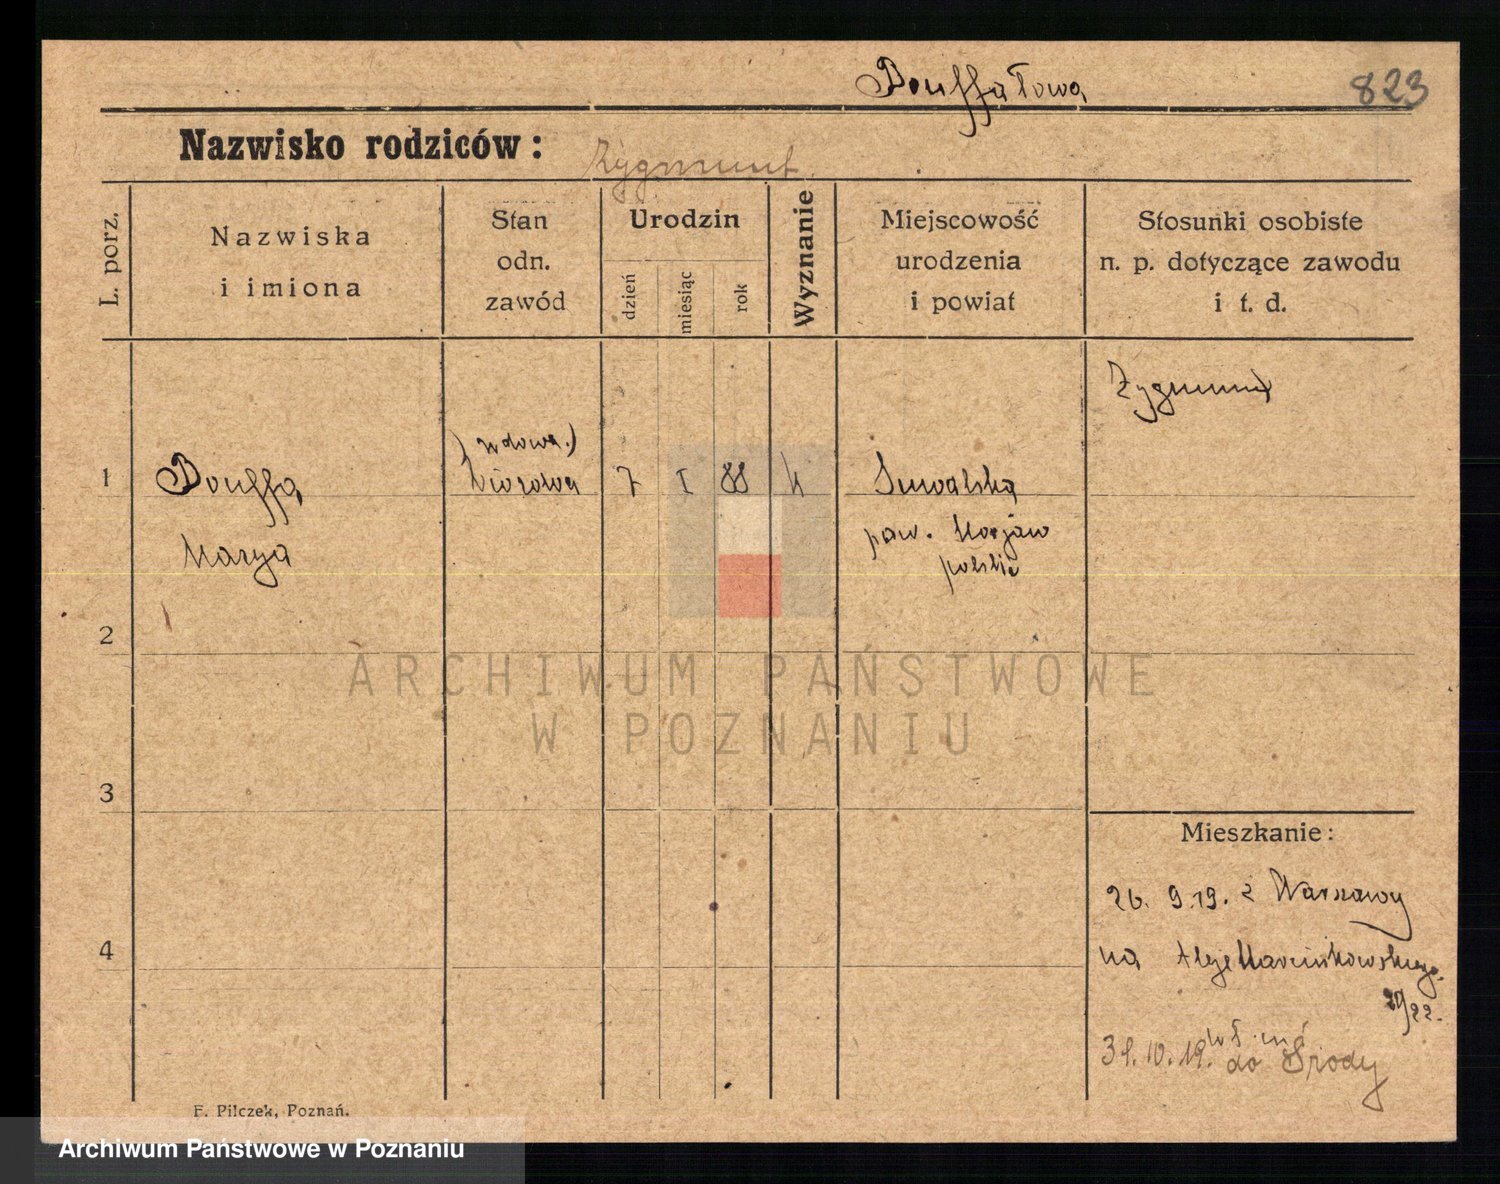 Bouffałowa
823
Nazwisko rodziców:
Zygmunt
L. porz.
Nazwiska
i imiona
Stan
odn.
zawód
Urodzin
dzień
miesiąc
rok
Wyznanie
Miejscowość
urodzenia
i powiat
Stosunki osobiste
n. p. dotyczące zawodu
i t. d.
Zygmunt
1
Bouffa
Marya
(wdowa.)
7
I
88
k
Suwalska
pow.
polskie
2
ARCHIWUM PAŃSTWOWE
W POZNANIU
3
Mieszkanie:
26. 9.19. z Warszawy
na Aleje Marcinkowskiego
22.
4
31.10.19. do Środy
F. Pilczek, Poznań.
Archiwum Państwowe w Poznaniu